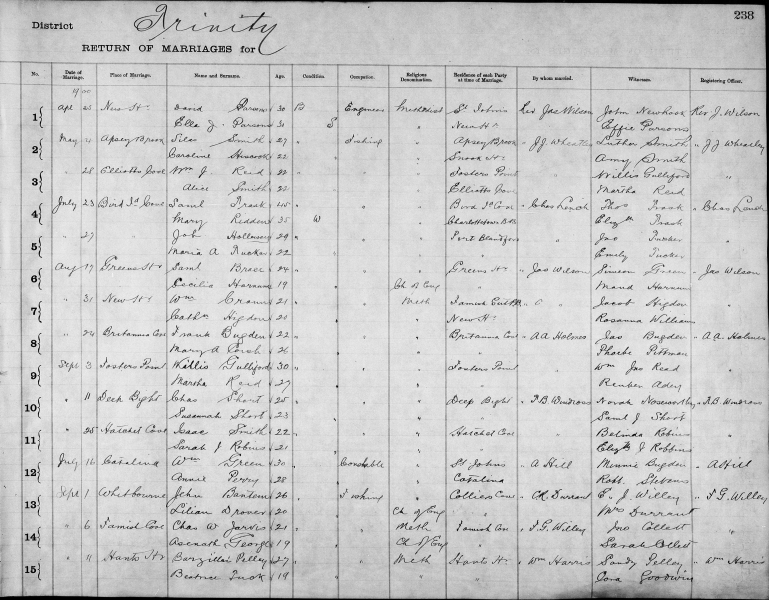 238
District Trinity
RETURN OF MARRIAGES for
No. Date of Marriage. Place of Marriage. Name and Surname. Age. Condition. Occupation. Religious Denomination. Residence of each Party at time of Marriage. By whom married. Witnesses. Registering Officer.
1900
1 Apl 25 New Hr David Parsons 30 B Engineer Methodist St Johns Rev Jas Wilson John Newhook Rev J. Wilson
Ella J Parsons S " New Hr Effie Parsons
2 May Apsey Brook Silas Smith 27 " Fishing " Apsey Brook " J.J. Wheatley Luther Smith " J J Wheatley
Caroline 22 " Snooks Hr Amy Smith
3 " 28 Elliotts Cove Wm J. Reid 22 " " " Fosters Point Willis Gulliford "
Alice Smith 22 " " Elliotts Cove Martha Reid
4 July 23 Bird Id Cove Saml Frask " " Bird Id Cove " Chas Lench Thos Frask " Chas Lench
Mary 35 W " Charlottetown Elizth Frask
5 " 27 " Job Holloway 29 " " " Port Blandford " Jno Tucker "
Maria A Tucker 22 " " Emily Tucker
6 Aug 17 Greens Hr Saml Brace 24 " " " Greens Hr " Jas Wilson Simeon Green " Jas Wilson
Cecilia 19 " Ch of Eng " Maud
7 " 31 New Hr Wm 21 " " Meth Famish Jacob Higdon "
Cathn Higdon 20 " " New Hr Rosanna Williams
8 " 24 Britannia Cove Frank Bugden 22 " " " Britannia Cove " A A Holmes Jas Bugden " A A Holmes
Mary A 26 " " " Phoebe Pittman
9 Sept 3 Fosters Point Willis Gulliford 30 " " " Fosters Point " Wm Jas Read "
Martha Reid 27 " " " Reuben Adey
10 " 11 Deep Bight Chas Short 25 " " " Deep Bight " Norah Noseworthy
Susannah Short 23 " " " Saml J Short
11 " 25 Hatchet Cove Isaac Smith 22 " " " Hatchet Cove " Belinda Robins "
Sarah J Robins 21 " " " Elizth J Robbins
12 July 16 Catalina Wm Green 30 " Constable " St Johns " A Hill Minnie Bugden " A Hill
Annie Perry 28 " " Catalina Robt. Stevens
13 Sept 1 Whitbourne John 26 " Fishing " Colliers Cove " Durrant E. J. Willey " F G. Willey
Lilian Drover 20 " Ch of Eng " Mrs Durrant
14 " 6 Famish Cove Chas W Jarvis 21 " " Meth Famish Cove " F.G. Willey Jno Collett "
Asenath George 19 " Ch of Eng " Sarah Collett
15 " 11 Hants Hr Barzillai Pelley 27 " " Meth Hants Hr " Wm Harris Sandy Pelley " Wm Harris
Beatrice Tuck 19 " " " Cora Goodwin